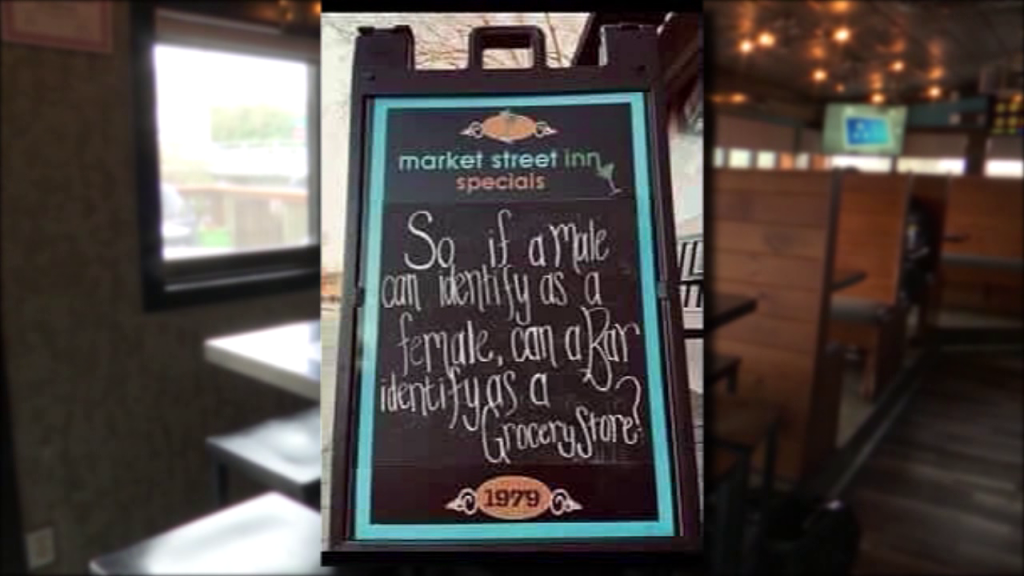 market street inn
specials
So if a Male
can identify as a
female, can a Bar
identify as a
Grocery Store?
1979